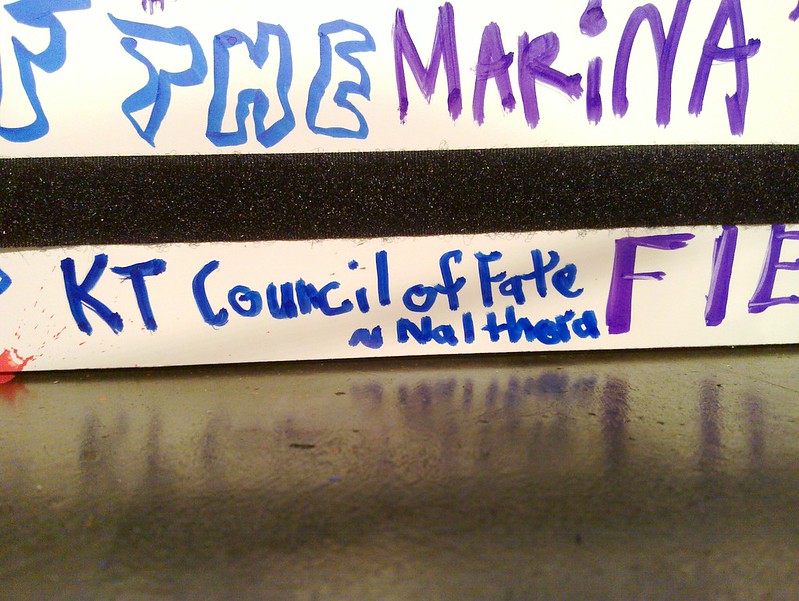 THE MARiNA
KT Council of Fate
~ Nalthora
FIE